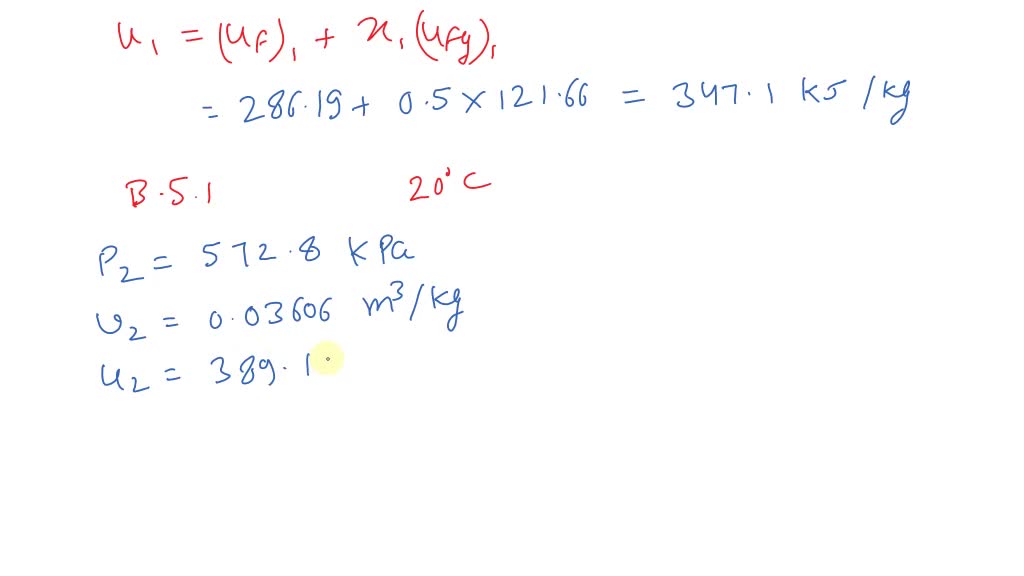 u₁ = (uf)₁ + x₁(ufg)₁
= 286.19 + 0.5 × 121.66 = 347.1 kJ/kg
B.5.1 20°C
P₂ = 572.8 kPa
υ₂ = 0.03606 m³/kg
u₂ = 389.1